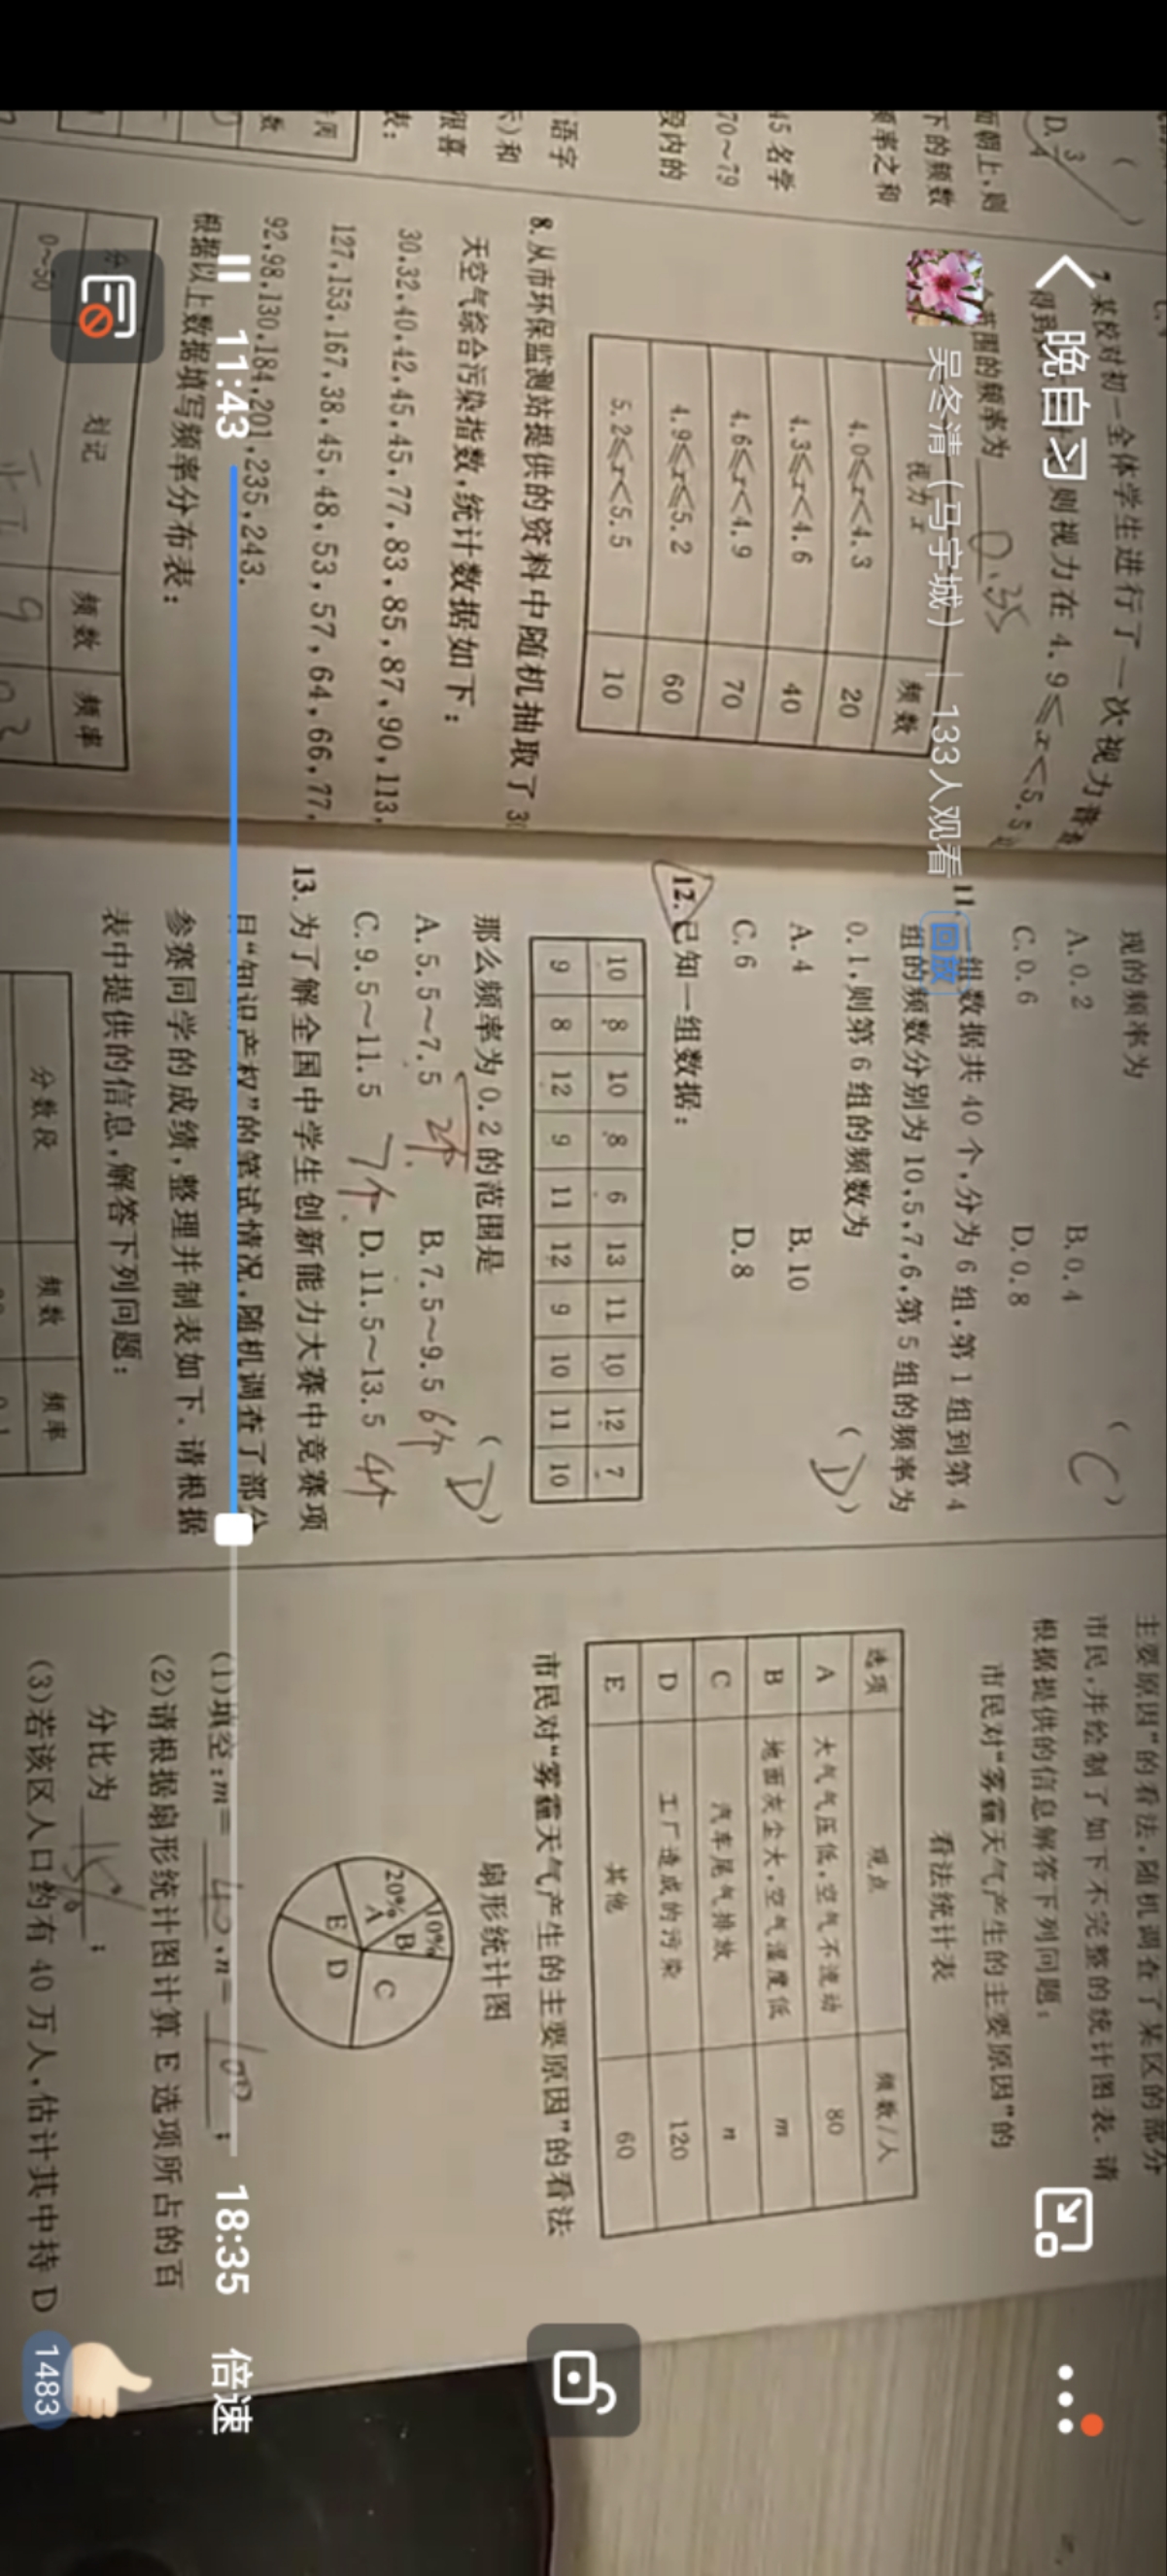 晚自习
吴冬清（马宇城） | 133人观看
回放
( )
D. 3/4
面朝上,则
下的频数
频率之和
45名学
70~79
段内的
语字
示)和
很喜
表:
7.某校对初一全体学生进行了一次视力普查
得到 则视力在4.9≤x<5.5
范围的频率为 0.35
视力x 频数
4.0≤x<4.3 20
4.3≤x<4.6 40
4.6≤x<4.9 70
4.9≤x≤5.2 60
5.2≤x<5.5 10
8.从市环保监测站提供的资料中随机抽取了
天空气综合污染指数,统计数据如下:
30,32,40,42,45,45,77,83,85,87,90,113,
127,153,167,38,45,48,53,57,64,66,77,
92,98,130,184,201,235,243.
根据以上数据填写频率分布表:
划记 频数 频率
0~50 9
现的频率为 ( C )
A.0.2 B.0.4
C.0.6 D.0.8
11.一组数据共40个,分为6组,第1组到第4
组的频数分别为10,5,7,6,第5组的频率为
0.1,则第6组的频数为 ( D )
A.4 B.10
C.6 D.8
12.已知一组数据:
10 8 10 8 6 13 11 10 12 7
9 8 12 9 11 12 9 10 11 10
那么频率为0.2的范围是 ( D )
A.5.5~7.5 2个 B.7.5~9.5 6个
C.9.5~11.5 7个 D.11.5~13.5 4个
13.为了解全国中学生创新能力大赛中竞赛项
目“知识产权”的笔试情况,随机调查了部分
参赛同学的成绩,整理并制表如下.请根据
表中提供的信息,解答下列问题:
分数段 频数 频率
主要原因”的看法,随机调查了某区的部分
市民,并绘制了如下不完整的统计图表.请
根据提供的信息解答下列问题:
市民对“雾霾天气产生的主要原因”的
看法统计表
选项 观点 频数/人
A 大气气压低,空气不流动 80
B 地面灰尘大,空气湿度低 m
C 汽车尾气排放 n
D 工厂造成的污染 120
E 其他 60
市民对“雾霾天气产生的主要原因”的看法
扇形统计图
10%
20%
A
B
C
D
E
(1)填空:m= 40 ,n= 100 ;
(2)请根据扇形统计图计算E选项所占的百
分比为 15% ;
(3)若该区人口约有40万人,估计其中持D
11:43
18:35
倍速
1483